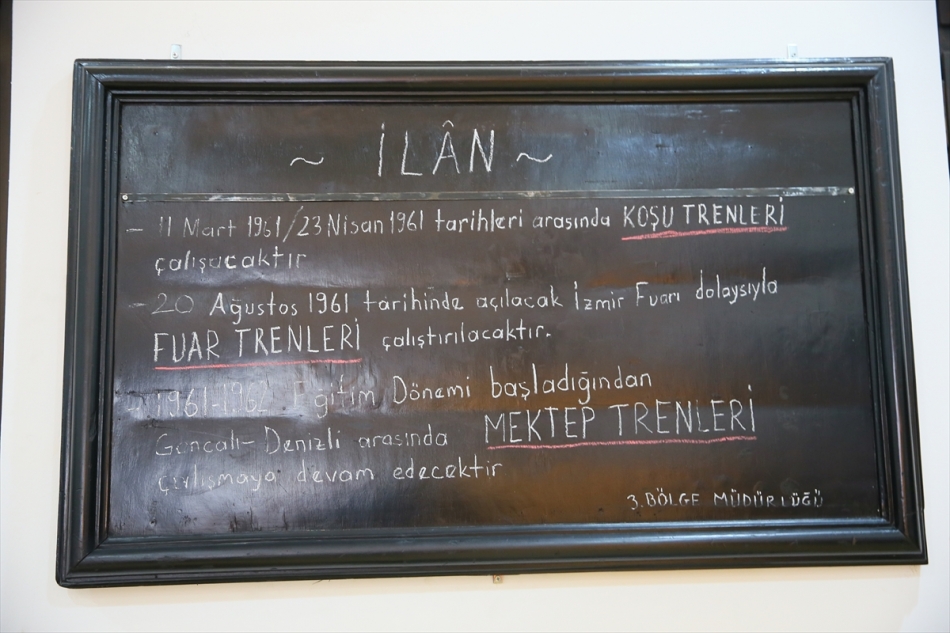 ~ İLÂN ~
- 11 Mart 1961/23 Nisan 1961 tarihleri arasında KOŞU TRENLERİ
çalışacaktır
- 20 Ağustos 1961 tarihinde açılacak İzmir Fuarı dolaysıyla
FUAR TRENLERİ çalıştırılacaktır.
- 1961-1962 Eğitim Dönemi başladığından
Goncalı-Denizli arasında MEKTEP TRENLERİ
çalışmaya devam edecektir
3. BÖLGE MÜDÜRLÜĞÜ